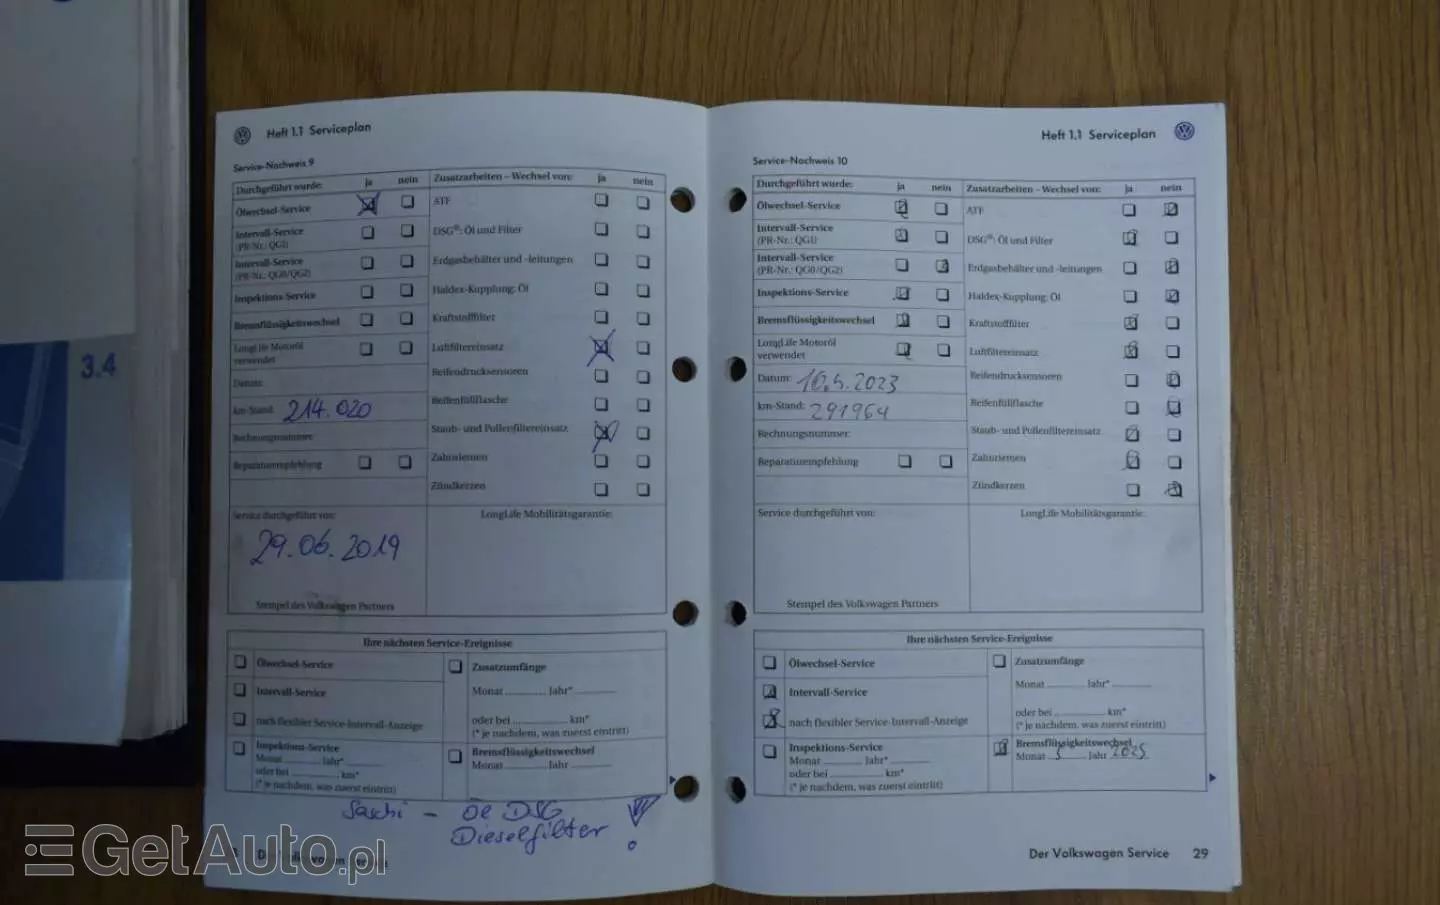 3.4
Heft 1.1 Serviceplan
Service-Nachweis 9
Durchgeführt wurde: ja nein
Ölwechsel-Service
Intervall-Service
(PR-Nr.: QG1)
Intervall-Service
(PR-Nr.: QG0/QG2)
Inspektions-Service
Bremsflüssigkeitswechsel
LongLife Motoröl
verwendet
Datum:
km-Stand: 214.020
Rechnungsnummer:
Reparaturempfehlung
Zusatzarbeiten - Wechsel von: ja nein
ATF
DSG®: Öl und Filter
Erdgasbehälter und -leitungen
Haldex-Kupplung: Öl
Kraftstofffilter
Luftfiltereinsatz
Reifendrucksensoren
Reifenfüllflasche
Staub- und Pollenfiltereinsatz
Zahnriemen
Zündkerzen
Service durchgeführt von:
29.06.2019
Stempel des Volkswagen Partners
LongLife Mobilitätsgarantie:
Ihre nächsten Service-Ereignisse
Ölwechsel-Service
Intervall-Service
nach flexibler Service-Intervall-Anzeige
Inspektions-Service
Monat Jahr*
oder bei km*
(* je nachdem, was zuerst eintritt)
Zusatzumfänge
Monat Jahr*
oder bei km*
(* je nachdem, was zuerst eintritt)
Bremsflüssigkeitswechsel
Monat Jahr
Saschi - Öl DSG
Dieselfilter !
Der Volkswagen Service
Heft 1.1 Serviceplan
Service-Nachweis 10
Durchgeführt wurde: ja nein
Ölwechsel-Service
Intervall-Service
(PR-Nr.: QG1)
Intervall-Service
(PR-Nr.: QG0/QG2)
Inspektions-Service
Bremsflüssigkeitswechsel
LongLife Motoröl
verwendet
Datum: 16.5.2023
km-Stand: 291964
Rechnungsnummer:
Reparaturempfehlung
Zusatzarbeiten - Wechsel von: ja nein
ATF
DSG®: Öl und Filter
Erdgasbehälter und -leitungen
Haldex-Kupplung: Öl
Kraftstofffilter
Luftfiltereinsatz
Reifendrucksensoren
Reifenfüllflasche
Staub- und Pollenfiltereinsatz
Zahnriemen
Zündkerzen
Service durchgeführt von:
Stempel des Volkswagen Partners
LongLife Mobilitätsgarantie:
Ihre nächsten Service-Ereignisse
Ölwechsel-Service
Intervall-Service
nach flexibler Service-Intervall-Anzeige
Inspektions-Service
Monat Jahr*
oder bei km*
(* je nachdem, was zuerst eintritt)
Zusatzumfänge
Monat Jahr*
oder bei km*
(* je nachdem, was zuerst eintritt)
Bremsflüssigkeitswechsel
Monat 5 Jahr 2025
Der Volkswagen Service 29
GetAuto.pl